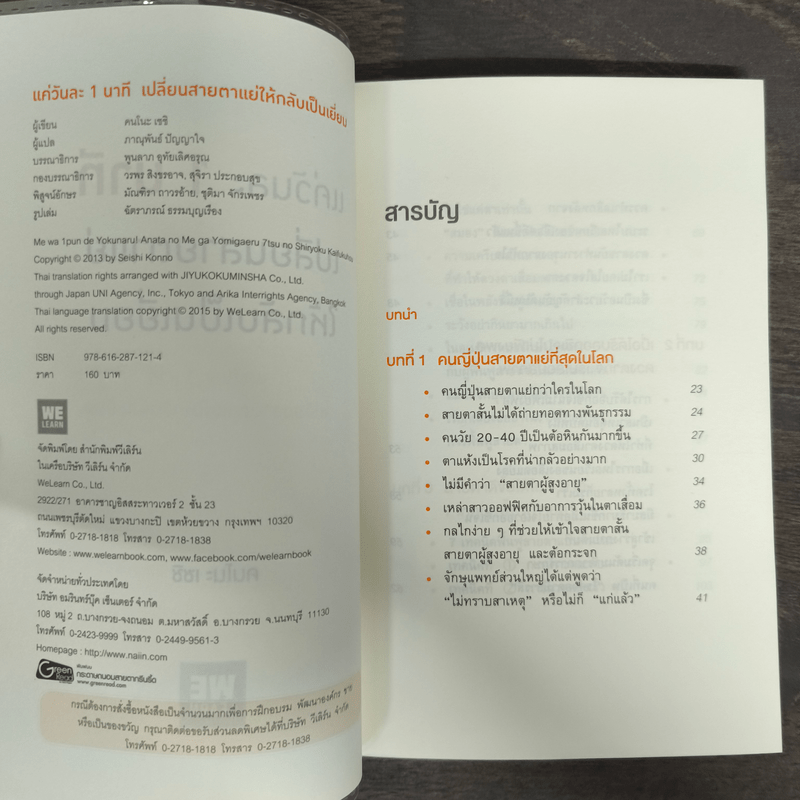 แค่วันละ 1 นาที เปลี่ยนสายตาแย่ให้กลับเป็นเยี่ยม
ผู้เขียน คนโนะ เซชิ
ผู้แปล ภาณุพันธ์ ปัญญาใจ
บรรณาธิการ พูนลาภ อุทัยเลิศอรุณ
กองบรรณาธิการ วรพร สิงขรอาจ, สุจิรา ประกอบสุข
พิสูจน์อักษร มัณฑิรา ถาวรอ้าย, ชุติมา จักรเพชร
รูปเล่ม ฉัตราภรณ์ ธรรมบุญเรือง
Me wa 1pun de Yokunaru! Anata no Me ga Yomigaeru 7tsu no Shiryoku Kaifukuhou
Copyright © 2013 by Seishi Konno
Thai translation rights arranged with JIYUKOKUMINSHA Co., Ltd.
through Japan UNI Agency, Inc., Tokyo and Arika Interrights Agency, Bangkok
Thai language translation copyright © 2015 by WeLearn Co., Ltd.
All rights reserved.
ISBN 978-616-287-121-4
ราคา 160 บาท
WE
LEARN
จัดพิมพ์โดย สำนักพิมพ์วีเลิร์น
ในเครือบริษัท วีเลิร์น จำกัด
WeLearn Co., Ltd.
2922/271 อาคารชาญอิสสระทาวเวอร์ 2 ชั้น 23
ถนนเพชรบุรีตัดใหม่ แขวงบางกะปิ เขตห้วยขวาง กรุงเทพฯ 10320
โทรศัพท์ 0-2718-1818 โทรสาร 0-2718-1838
Website : www.welearnbook.com, www.facebook.com/welearnbook
จัดจำหน่ายทั่วประเทศโดย
บริษัท อมรินทร์บุ๊ค เซ็นเตอร์ จำกัด
108 หมู่ 2 ถ.บางกรวย-จงถนอม ต.มหาสวัสดิ์ อ.บางกรวย จ.นนทบุรี 11130
โทรศัพท์ 0-2423-9999 โทรสาร 0-2449-9561-3
Homepage : http://www.naiin.com
Green Read
พิมพ์บน
กระดาษถนอมสายตากรีนรี้ด
www.greenread.com
กรณีต้องการสั่งซื้อหนังสือเป็นจำนวนมากเพื่อการฝึกอบรม พัฒนาองค์กร ขาย
หรือเป็นของขวัญ กรุณาติดต่อขอรับส่วนลดพิเศษได้ที่บริษัท วีเลิร์น จำกัด
โทรศัพท์ 0-2718-1818 โทรสาร 0-2718-1838
สารบัญ
บทนำ
บทที่ 1 คนญี่ปุ่นสายตาแย่ที่สุดในโลก
• คนญี่ปุ่นสายตาแย่กว่าใครในโลก 23
• สายตาสั้นไม่ได้ถ่ายทอดทางพันธุกรรม 24
• คนวัย 20-40 ปีเป็นต้อหินกันมากขึ้น 27
• ตาแห้งเป็นโรคที่น่ากลัวอย่างมาก 30
• ไม่มีคำว่า “สายตาผู้สูงอายุ” 34
• เหล่าสาวออฟฟิศกับอาการวุ้นในตาเสื่อม 36
• กลไกง่าย ๆ ที่ช่วยให้เข้าใจสายตาสั้น
สายตาผู้สูงอายุ และต้อกระจก 38
• จักษุแพทย์ส่วนใหญ่ได้แต่พูดว่า
“ไม่ทราบสาเหตุ” หรือไม่ก็ “แก่แล้ว” 41